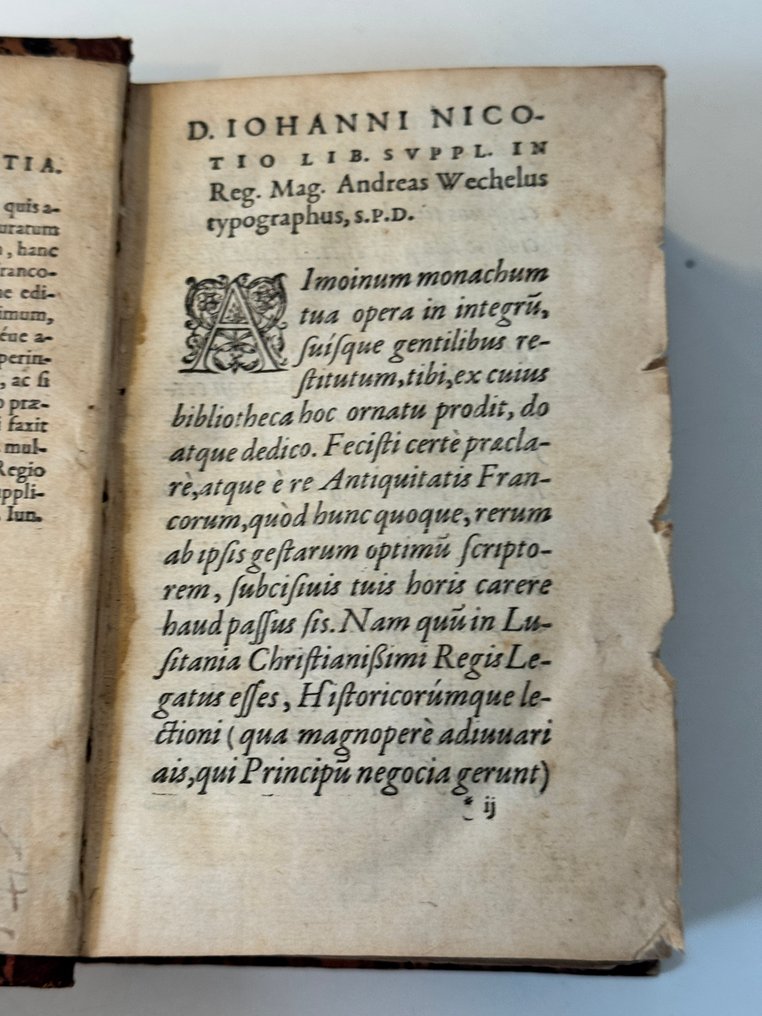 TIA.
quis a-
uratum
, hanc
ranco-
ne edi-
imum,
éue a-
perin-
, ac si
præ-
faxit
mul-
Regio
uppli-
Iun.
D. IOHANNI NICO-
TIO LIB. SVPPL. IN
Reg. Mag. Andreas Wechelus
typographus, S.P.D.
AImoinum monachum
tua opera in integrū,
ſuiſque gentilibus re-
ſtitutum, tibi, ex cuius
bibliotheca hoc ornatu prodit, do
atque dedico. Feciſti certè præcla-
rè, atque è re Antiquitatis Fran-
corum, quòd hunc quoque, rerum
ab ipſis geſtarum optimū ſcripto-
rem, ſubciſiuis tuis horis carere
haud paſſus ſis. Nam quū in Lu-
ſitania Chriſtianißimi Regis Le-
gatus eſſes, Hiſtoricorúmque le-
ctioni (qua magnoperè adiuuari
ais, qui Principū negocia gerunt)
* ij